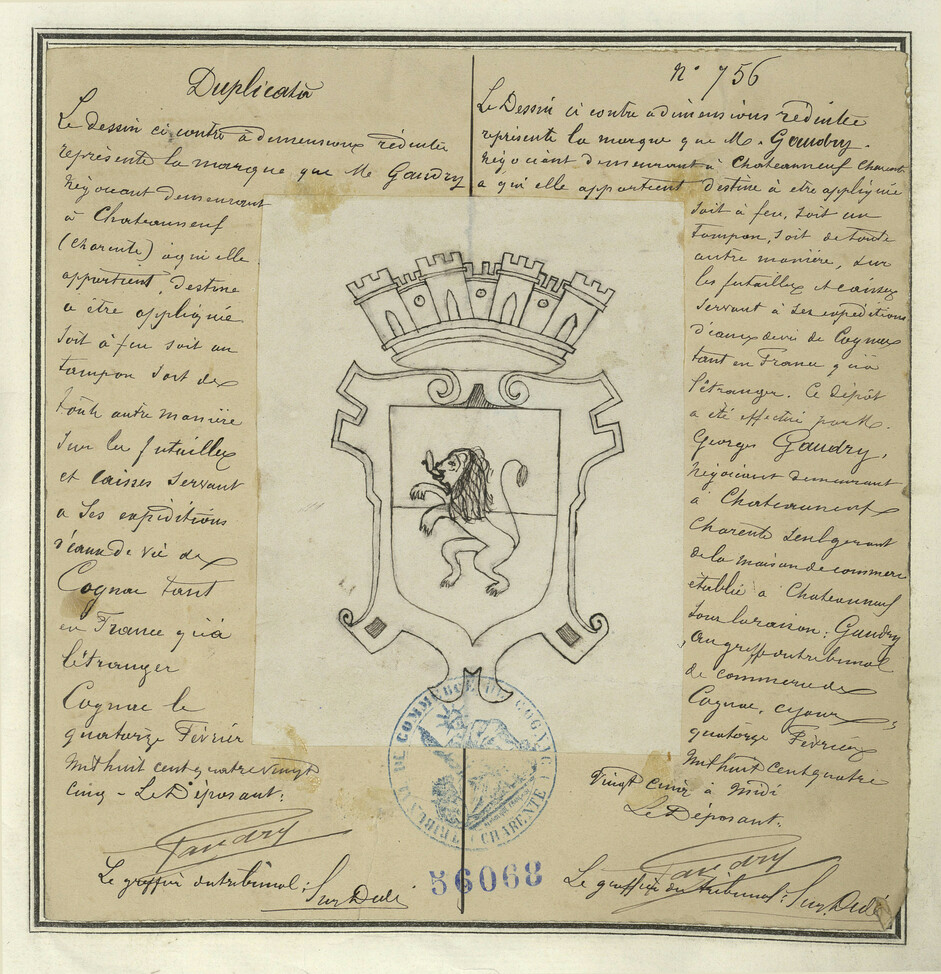 Duplicata
Le dessin ci contre à dimensions réduites
représente la marque que Mr Gaudry
négociant demeurant
à Chateauneuf
(Charente) à qui elle
appartient, destine
à être appliquée
soit à feu soit au
tampon soit de
toute autre manière
sur les futailles
et caisses servant
a ses expéditions
d'eaux de vie de
Cognac tant
en France qu'à
l'étranger
Cognac le
quatorze Février
mil huit cent quatre vingt
cinq - Le Déposant:
Gaudry
Le greffier du tribunal:
n° 756
Le Dessin ci contre a dimensions réduites
représente la marque que M. Gaudry.
négociant demeurant à Chateauneuf Charente
a qui elle appartient destine à être appliquée
soit à feu, soit au
tampon, soit de toute
autre manière, sur
les futailles et caisses
servant à ses expéditions
d'eaux de vie de Cognac
tant en France qu'à
l'étranger. Ce dépôt
a été effectué par M.
Georges Gaudry,
négociant demeurant
à Chateauneuf
Charente seul gérant
de la maison de commerce
établie à Chateauneuf
sous la raison: Gaudry
au greffe du tribunal
de commerce de
Cognac, ce jour
quatorze Février
mil huit cent quatre
vingt cinq à midi
Le Déposant:
Gaudry
Le greffier du tribunal:
TRIBUNAL DE COMMERCE DE COGNAC
CHARENTE
56068